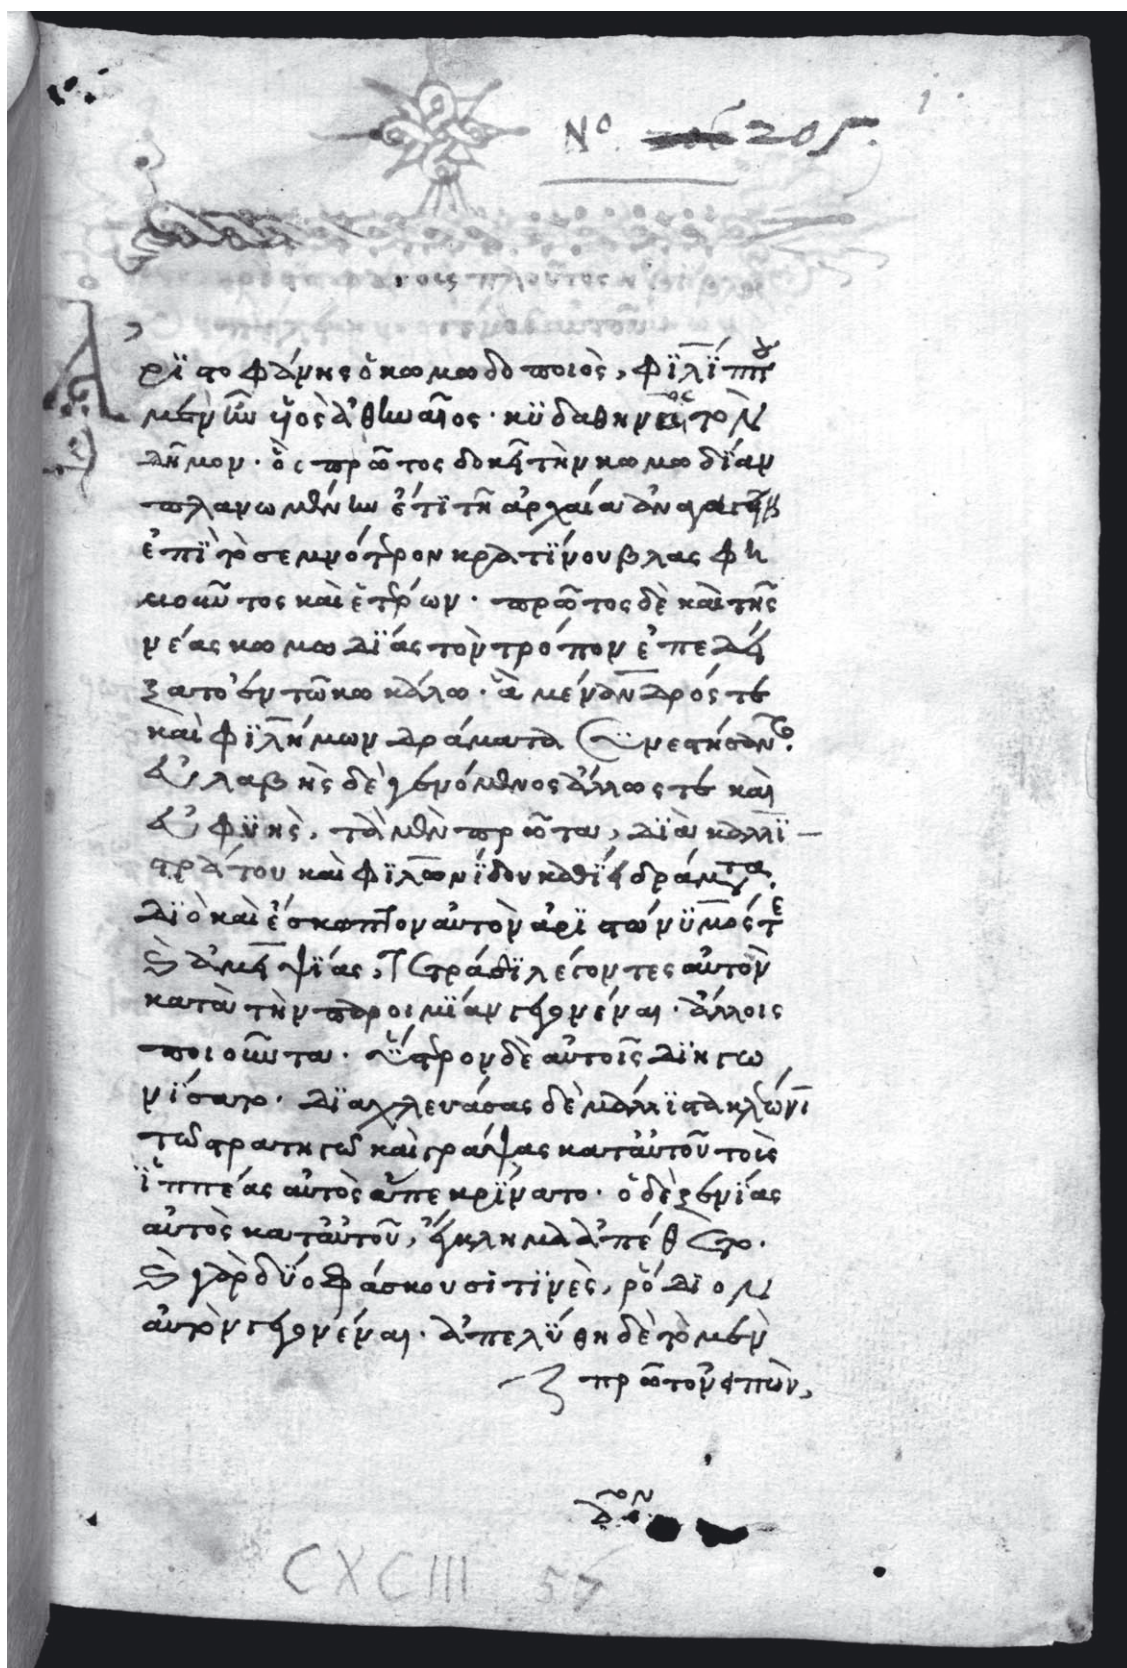 1.
Nº 205.
πλοῦτος
Ἀρϊστοφάνης ὁ κωμωδοποιὸς, φϊλίππου
μὲν ἦν υἱὸς ἀθηναῖος. κϋδαθηναιεὺς τὸν
δῆμον. ὃς πρῶτος δοκεῖ τὴν κωμωδίαν
πλανωμένην ἔτι τῇ ἀρχαία ἀγωγῇ
ἐπὶ τὸ σεμνότερον κρατίνου βλασφη
μοῦντος καὶ ἑτέρων. πρῶτος δὲ καὶ τῆς
νέας κωμωδίας τὸν τρόπον ἐπεδεί
ξατο ἐν τῶ κωκάλω. ἃ μένανδρός τε
καὶ φϊλήμων δράματα συνεστήσαντο.
εὐλαβὴς δὲ γενόμενος ἄλλως τε καὶ
εὐφϋὴς, τὰ μὲν πρῶτα, διὰ καλλϊ
στράτου καὶ φϊλωνίδου καθίει δράματα.
διὸ καὶ ἔσκωπτον αὐτὸν ἀρϊστώνϋμός τε
καὶ ἀμειψίας, τετράδι λέγοντες αὐτὸν
κατὰ τὴν παροιμίαν γεγονέναι. ἄλλοις
ποιοῦντα. ὕστερον δὲ αὐτοῖς διηγω
νίσατο. διαχλευάσας δὲ μάλϊστα κλέωνι
τῶ στρατηγῶ καὶ γράψας κατ' αὐτοῦ τοῖς
ἱππέας αὐτὸς ἀπεκρίνατο. ὁ δὲ ξενίας
αὐτὸς κατ' αὐτοῦ, ἔγκλημα ἀπέθετο.
καὶ γὰρ δύο φάσκουσί τινὲς, ῥόδιον
αὐτὸν γεγονέναι. ἀπελύθη δὲ τὸ μὲν
πρῶτον εἰπὼν,
CXCIII 57